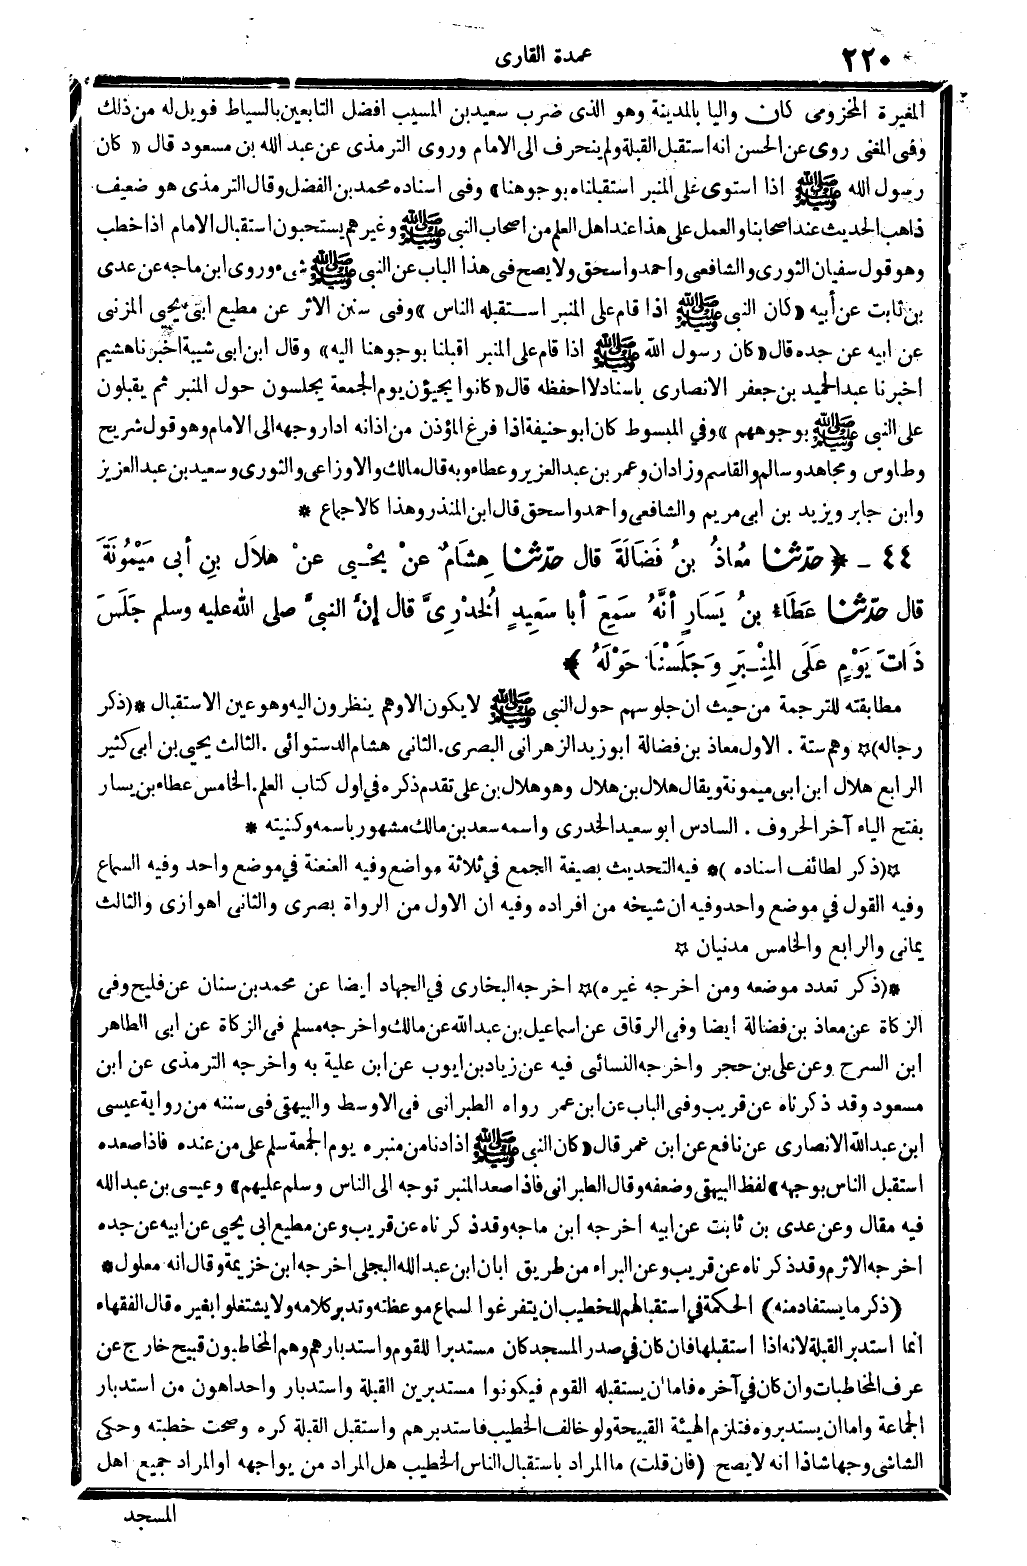 ٢٢٠
عمدة القارى
المغيرة المخزومى كان واليا بالمدينة وهو الذى ضرب سعيد بن المسيب افضل التابعين بالسياط فويل له من ذلك
وفى المغنى روى عن الحسن انه استقبل القبلة ولم ينحرف الى الامام وروى الترمذى عن عبد الله بن مسعود قال « كان
رسول الله ﷺ اذا استوى على المنبر استقبلناه بوجوهنا» وفى اسناده محمد بن الفضل وقال الترمذى هو ضعيف
ذاهب الحديث عند اصحابنا والعمل على هذا عند اهل العلم من اصحاب النبى ﷺ وغيرهم يستحبون استقبال الامام اذا خطب
وهو قول سفيان الثورى والشافعى واحمد واسحق ولا يصح فى هذا الباب عن النبى ﷺ شىء وروى ابن ماجه عن عدى
بن ثابت عن أبيه «كان النبى ﷺ اذا قام على المنبر استقبله الناس» وفى سنن الاثر عن مطيع ابى يحيى المزنى
عن ابيه عن جده قال «كان رسول الله ﷺ اذا قام على المنبر اقبلنا بوجوهنا اليه» وقال ابن ابى شيبة اخبرنا هشيم
اخبرنا عبد الحميد بن جعفر الانصارى باسناد لا احفظه قال «كانوا يجيؤن يوم الجمعة يجلسون حول المنبر ثم يقبلون
على النبى ﷺ بوجوههم» وفي المبسوط كان ابو حنيفة اذا فرغ المؤذن من اذانه ادار وجهه الى الامام وهو قول شريح
وطاوس ومجاهد وسالم والقاسم وزادان وعمر بن عبد العزيز وعطاء وبه قال مالك والاوزاعى والثورى وسعيد بن عبد العزيز
وابن جابر ويزيد بن ابى مريم والشافعى واحمد واسحق قال ابن المنذر وهذا كالاجماع *
٤٤ - ﴿ حدّثنا مُعاذُ بنُ فَضَالَةَ قال حدّثنا هِشَامٌ عنْ يحْيى عنْ هلاَل بنِ أبى مَيْمُونَةَ
قال حدّثنا عَطَاءُ بنُ يَسَارٍ أنَّهُ سَمِعَ أبا سَعِيدٍ الخدْرِىَّ قال إنَّ النبىَّ صلى الله عليه وسلم جَلَسَ
ذَاتَ يَوْمٍ عَلَى المِنْبَرِ وَجَلَسْنَا حَوْلَهُ ﴾
مطابقته للترجمة من حيث ان جلوسهم حول النبى ﷺ لا يكون الا وهم ينظرون اليه وهو عين الاستقبال *(ذكر
رجاله)* وهم ستة . الاول معاذ بن فضالة ابو زيد الزهرانى البصرى. الثانى هشام الدستوائى . الثالث يحيى بن ابى كثير
الرابع هلال ابن ابى ميمونة ويقال هلال بن هلال وهو هلال بن على تقدم ذكره فى اول كتاب العلم. الخامس عطاء بن يسار
بفتح الياء آخر الحروف . السادس ابو سعيد الخدرى واسمه سعد بن مالك مشهور باسمه وكنيته *
*(ذكر لطائف اسناده )* فيه التحديث بصيغة الجمع فى ثلاثة مواضع وفيه العنعنة فى موضع واحد وفيه السماع
وفيه القول فى موضع واحد وفيه ان شيخه من افراده وفيه ان الاول من الرواة بصرى والثانى اهوازى والثالث
يمانى والرابع والخامس مدنيان *
*(ذكر تعدد موضعه ومن اخرجه غيره)* اخرجه البخارى فى الجهاد ايضا عن محمد بن سنان عن فليح وفى
الزكاة عن معاذ بن فضالة ايضا وفى الرقاق عن اسماعيل بن عبد الله عن مالك واخرجه مسلم فى الزكاة عن ابى الطاهر
ابن السرح وعن على بن حجر واخرجه النسائى فيه عن زياد بن ايوب عن ابن علية به واخرجه الترمذى عن ابن
مسعود وقد ذكرناه عن قريب وفى الباب عن ابن عمر رواه الطبرانى فى الاوسط والبيهقى فى سننه من رواية عيسى
ابن عبد الله الانصارى عن نافع عن ابن عمر قال «كان النبى ﷺ اذا دنا من منبره يوم الجمعة سلم على من عنده فاذا صعده
استقبل الناس بوجهه» لفظ البيهقى وضعفه وقال الطبرانى فاذا صعد المنبر توجه الى الناس وسلم عليهم» وعيسى بن عبد الله
فيه مقال وعن عدى بن ثابت عن ابيه اخرجه ابن ماجه وقد ذكرناه عن قريب وعن مطيع ابى يحيى عن ابيه عن جده
اخرجه الاثرم وقد ذكرناه عن قريب وعن البراء من طريق ابان ابن عبد الله البجلى اخرجه ابن خزيمة وقال انه معلول*
(ذكر ما يستفاد منه) الحكمة فى استقبالهم للخطيب ان يتفرغوا لسماع موعظته وتدبر كلامه ولا يشتغلوا بغيره قال الفقهاء
انما استدبر القبلة لانه اذا استقبلها فان كان فى صدر المسجد كان مستدبرا للقوم واستدبارهم وهم المخاطبون قبيح خارج عن
عرف المخاطبات وان كان فى آخره فاما ان يستقبله القوم فيكونوا مستدبرين القبلة واستدبار واحد اهون من استدبار
الجماعة واما ان يستدبروه فتلزم الهيئة القبيحة ولو خالف الخطيب فاستدبرهم واستقبل القبلة كره وصحت خطبته وحكى
الشاشى وجها شاذا انه لا يصح (فان قلت) ما المراد باستقبال الناس الخطيب هل المراد من يواجهه او المراد جميع اهل
المسجد